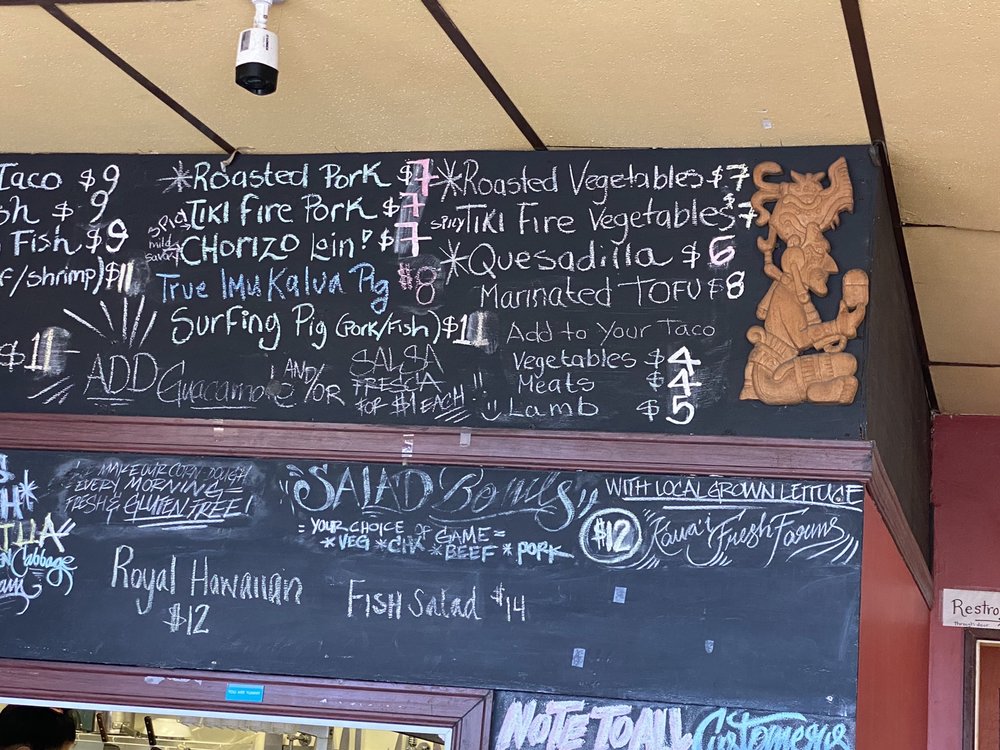 Taco $9
sh $9
Fish $9
f/shrimp) $11
$11
*Roasted Pork $7
spicy TIKI Fire Pork $7
mild savory CHORIZO Loin $7
True Imu Kalua Pig $8
Surfing Pig (Pork/Fish) $11
ADD Guacamole AND/OR SALSA FRESCA FOR $1 EACH!!
*Roasted Vegetables $7
spicy TIKI Fire Vegetables $7
*Quesadilla $6
Marinated TOFU $8
Add to Your Taco
Vegetables $4
Meats $4
Lamb $5
WE MAKE OUR CORN DOUGH
EVERY MORNING =
FRESH & GLUTEN FREE!
Cabbage
Royal Hawaiian
$12
"SALAD Bowls"
= YOUR CHOICE OF GAME =
*VEG *BEEF *PORK
Fish Salad $14
WITH LOCAL GROWN LETTUCE
$12 Kaua'i Fresh Farms
Restro
Through door
YOU ARE YUMMY
NOTE TO ALL Customers